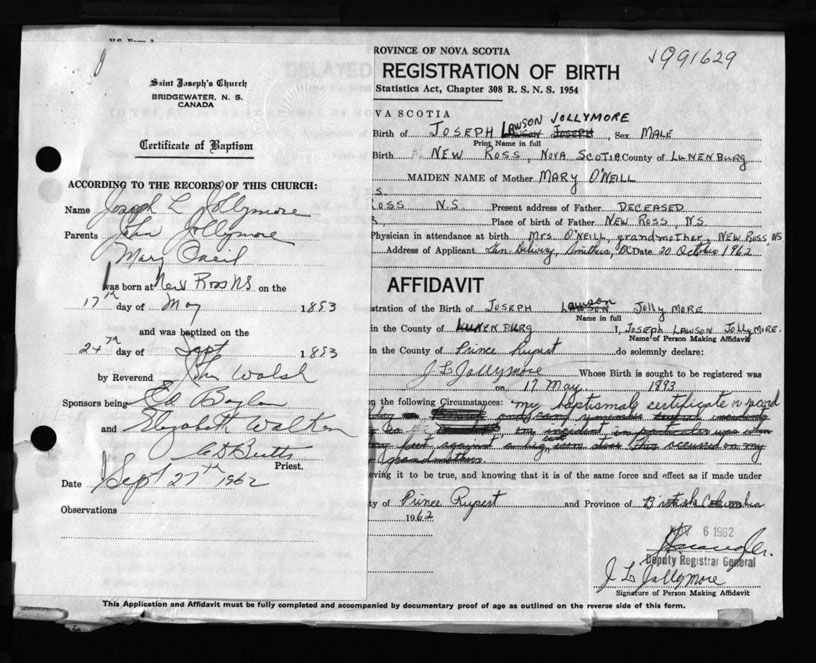 Saint Joseph's Church
BRIDGEWATER, N. S.
CANADA
Certificate of Baptism
ACCORDING TO THE RECORDS OF THIS CHURCH:
Name Joseph L Jollymore
Parents John Jollymore
Mary Oneil
was born at New Ross NS on the
17th day of May 1893
and was baptized on the
24th day of Sept 1893
by Reverend Thos Walsh
Sponsors being Ed Boylan
and Elizabeth Walker
Butts
Priest.
Date Sept 27th 1962
Observations
ROVINCE OF NOVA SCOTIA
1991629
DELAYED REGISTRATION OF BIRTH
Statistics Act, Chapter 308 R. S. N. S. 1954
VA SCOTIA
Birth of JOSEPH LAWSON JOLLYMORE, Sex MALE
Print Name in full
Birth NEW ROSS, NOVA SCOTIA County of LUNENBURG
MAIDEN NAME of Mother MARY O'NEILL
S.
ROSS N.S. Present address of Father DECEASED
Place of birth of Father NEW ROSS, N.S.
Physician in attendance at birth MRS. O'NEILL, grandmother, NEW ROSS NS
Address of Applicant Gen. Delivery, Smithers, BC Date 20 October 1962
AFFIDAVIT
stration of the Birth of JOSEPH Lawson JOLLYMORE
Name in full
in the County of LUNENBURG I, JOSEPH LAWSON JOLLYMORE.
Name of Person Making Affidavit
in the County of Prince Rupert do solemnly declare:
J L Jollymore Whose Birth is sought to be registered was
on 17 May 1893
n the following Circumstances: my baptismal certificate
grandmothers
eving it to be true, and knowing that it is of the same force and effect as if made under
ty of Prince Rupert and Province of British Columbia
1962
NOV 6 1962
Deputy Registrar General
J L Jollymore
Signature of Person Making Affidavit
This Application and Affidavit must be fully completed and accompanied by documentary proof of age as outlined on the reverse side of this form.